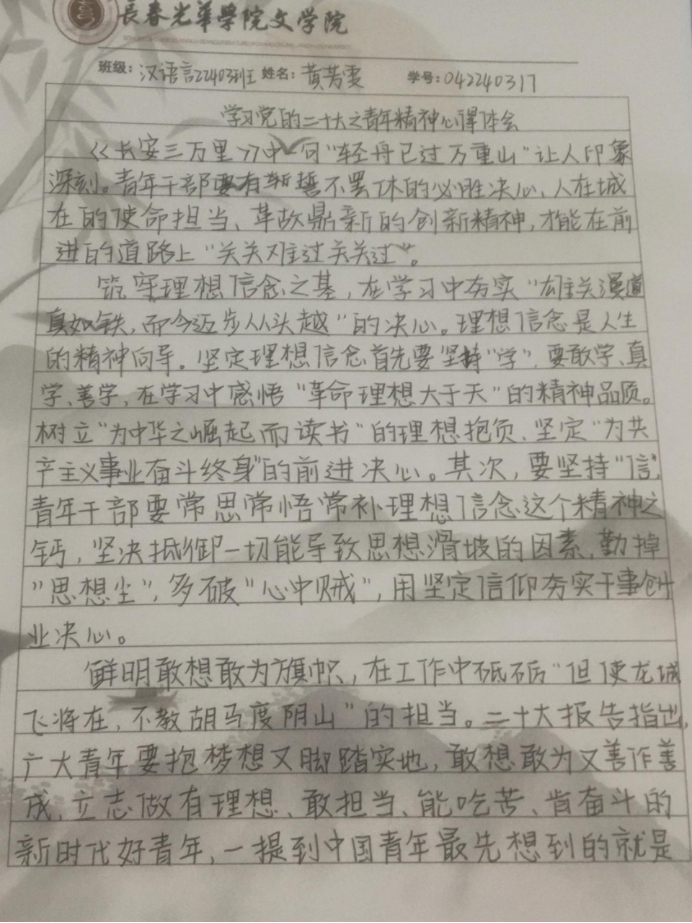 長春光華學院文学院
班级：汉语言22403班 姓名：黄芳雯 学号：042240317
学习党的二十大之青年精神心得体会
《长安三万里》中一句"轻舟已过万重山"让人印象
深刻。青年干部要有斩誓不罢休的必胜决心、人在城
在的使命担当、革故鼎新的创新精神，才能在前
进的道路上"关关难过关关过"。
筑牢理想信念之基，在学习中夯实"雄关漫道
真如铁，而今迈步从头越"的决心。理想信念是人生
的精神向导。坚定理想信念首先要坚持"学"，要敢学、真
学、善学，在学习中感悟"革命理想大于天"的精神品质。
树立"为中华之崛起而读书"的理想抱负、坚定"为共
产主义事业奋斗终身"的前进决心。其次，要坚持"信"，
青年干部要常思常悟常补理想信念这个精神之
钙，坚决抵御一切能导致思想滑坡的因素，勤掉
"思想尘"，多破"心中贼"，用坚定信仰夯实干事创
业决心。
鲜明敢想敢为旗帜，在工作中砥砺"但使龙城
飞将在，不教胡马度阴山"的担当。二十大报告指出，
广大青年要抱梦想又脚踏实地，敢想敢为又善作善
成，立志做有理想、敢担当、能吃苦、肯奋斗的
新时代好青年，一提到中国青年最先想到的就是